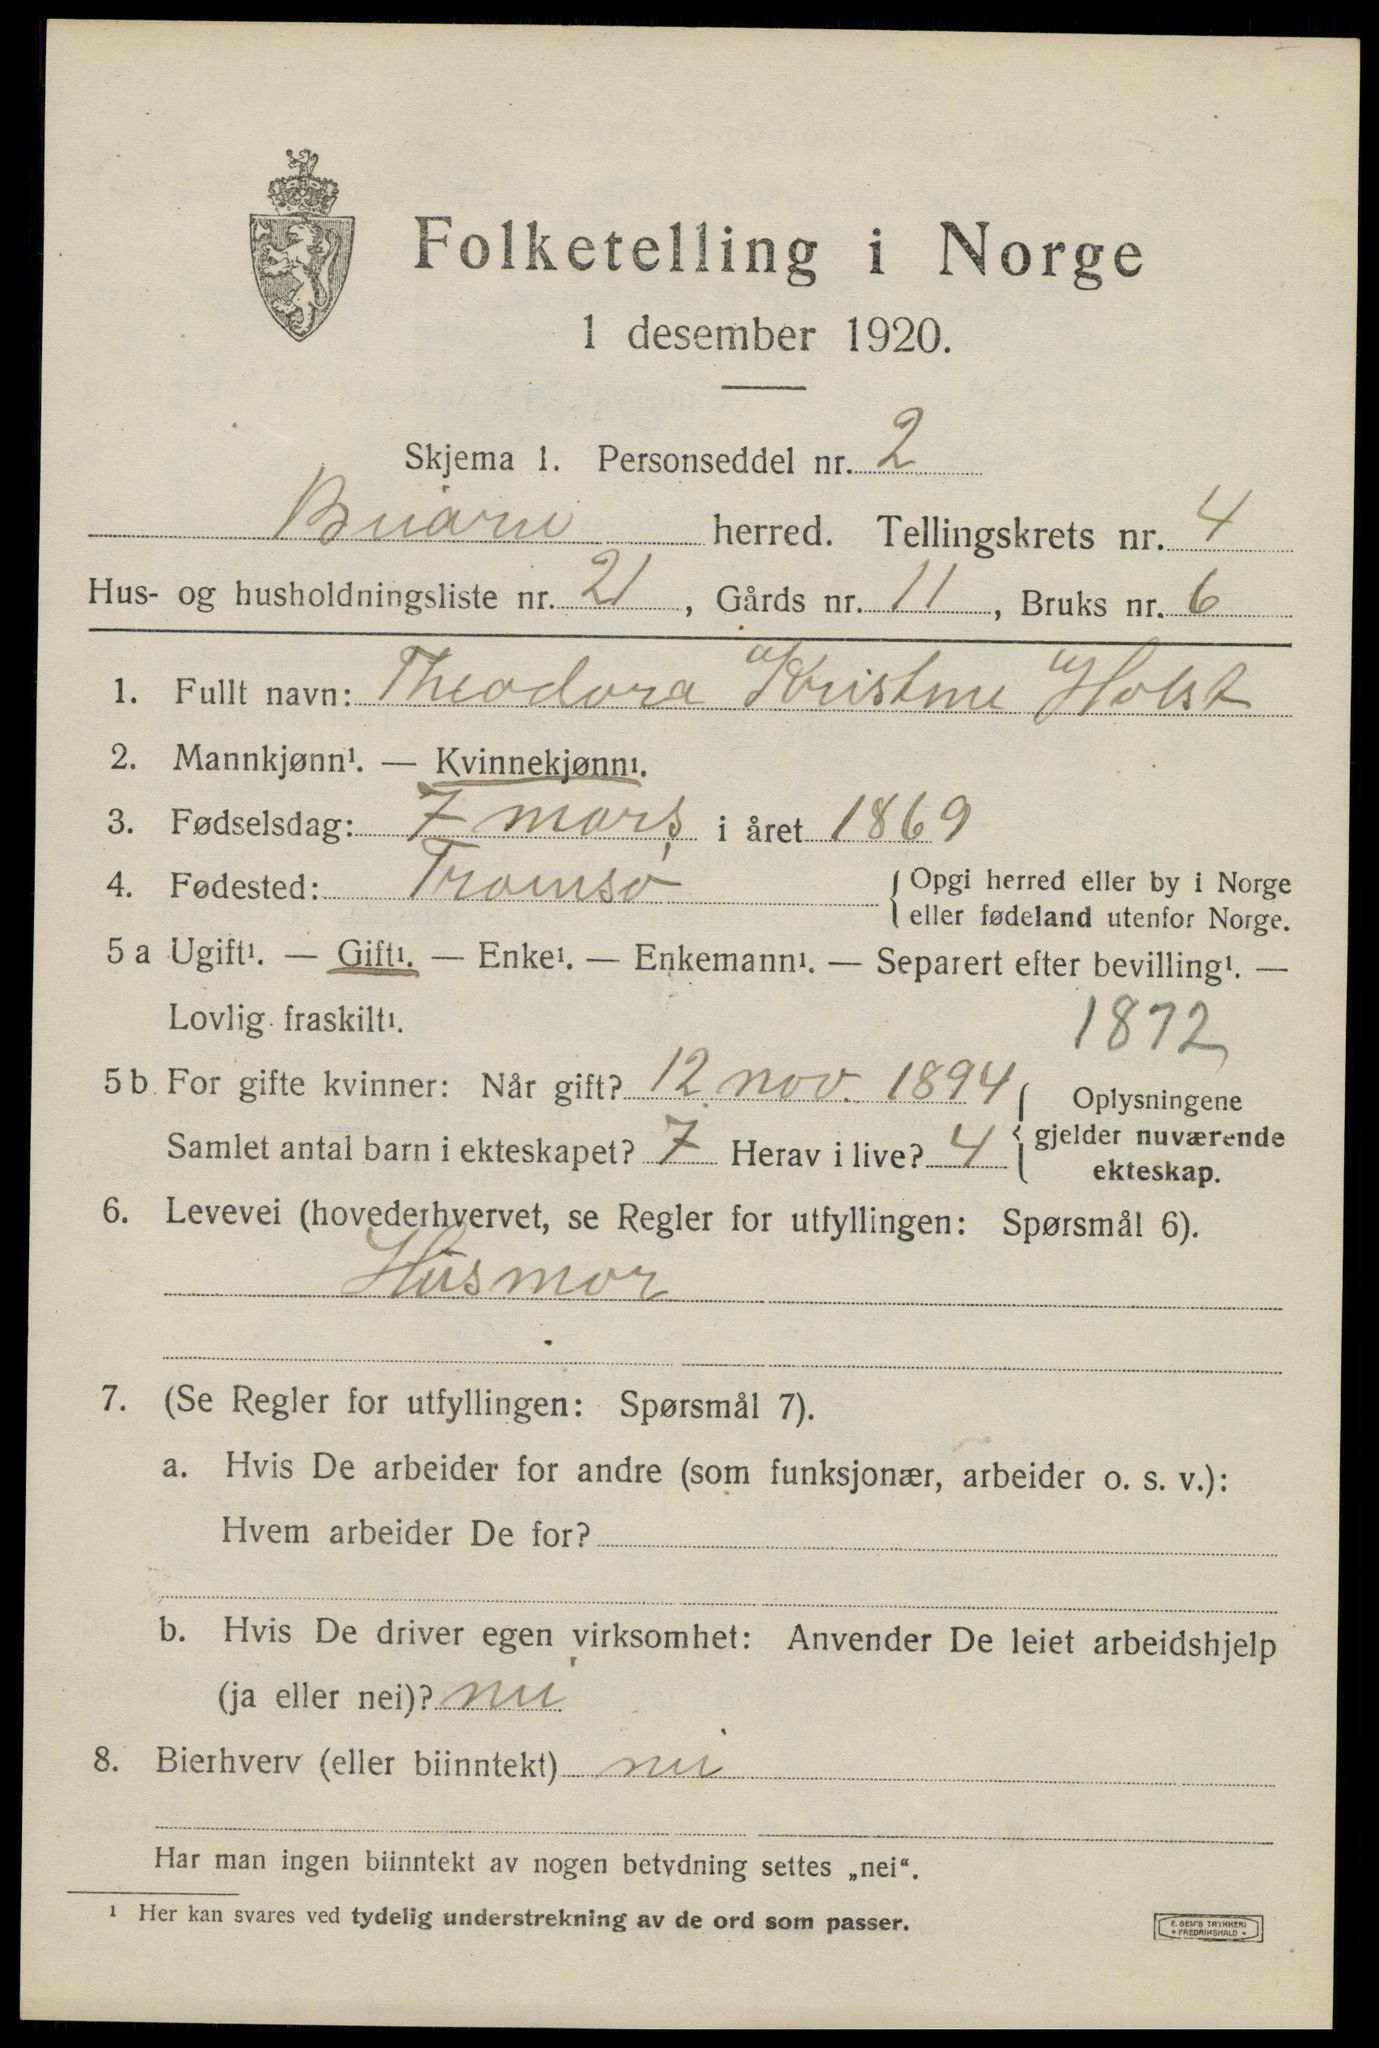 Folketelling i Norge
1 desember 1920.
Skjema 1. Personseddel nr. 2
herred. Tellingskrets nr. 4
Hus- og husholdningsliste nr. 21, Gårds nr. 11, Bruks nr. 6
1. Fullt navn: Theodora Kristine Holst
2. Mannkjønn¹. — Kvinnekjønn¹.
3. Fødselsdag: 7 mars, i året 1869
4. Fødested: Tromsø {Opgi herred eller by i Norge
eller fødeland utenfor Norge.
5 a Ugift¹. — Gift¹. — Enke¹. — Enkemann¹. — Separert efter bevilling¹. —
Lovlig fraskilt¹.
1872
5 b For gifte kvinner: Når gift? 12 nov. 1894
Samlet antal barn i ekteskapet? 7 Herav i live? 4
{Oplysningene
gjelder nuværende
ekteskap.
6. Levevei (hovederhvervet, se Regler for utfyllingen: Spørsmål 6).
Husmor
7. (Se Regler for utfyllingen: Spørsmål 7).
a. Hvis De arbeider for andre (som funksjonær, arbeider o. s. v.):
Hvem arbeider De for?
b. Hvis De driver egen virksomhet: Anvender De leiet arbeidshjelp
(ja eller nei)? nei
8. Bierhverv (eller biinntekt) nei
Har man ingen biinntekt av nogen betydning settes „nei“.
¹ Her kan svares ved tydelig understrekning av de ord som passer.
E. SEM'S TRYKKERI
* FREDRIKSHALD *